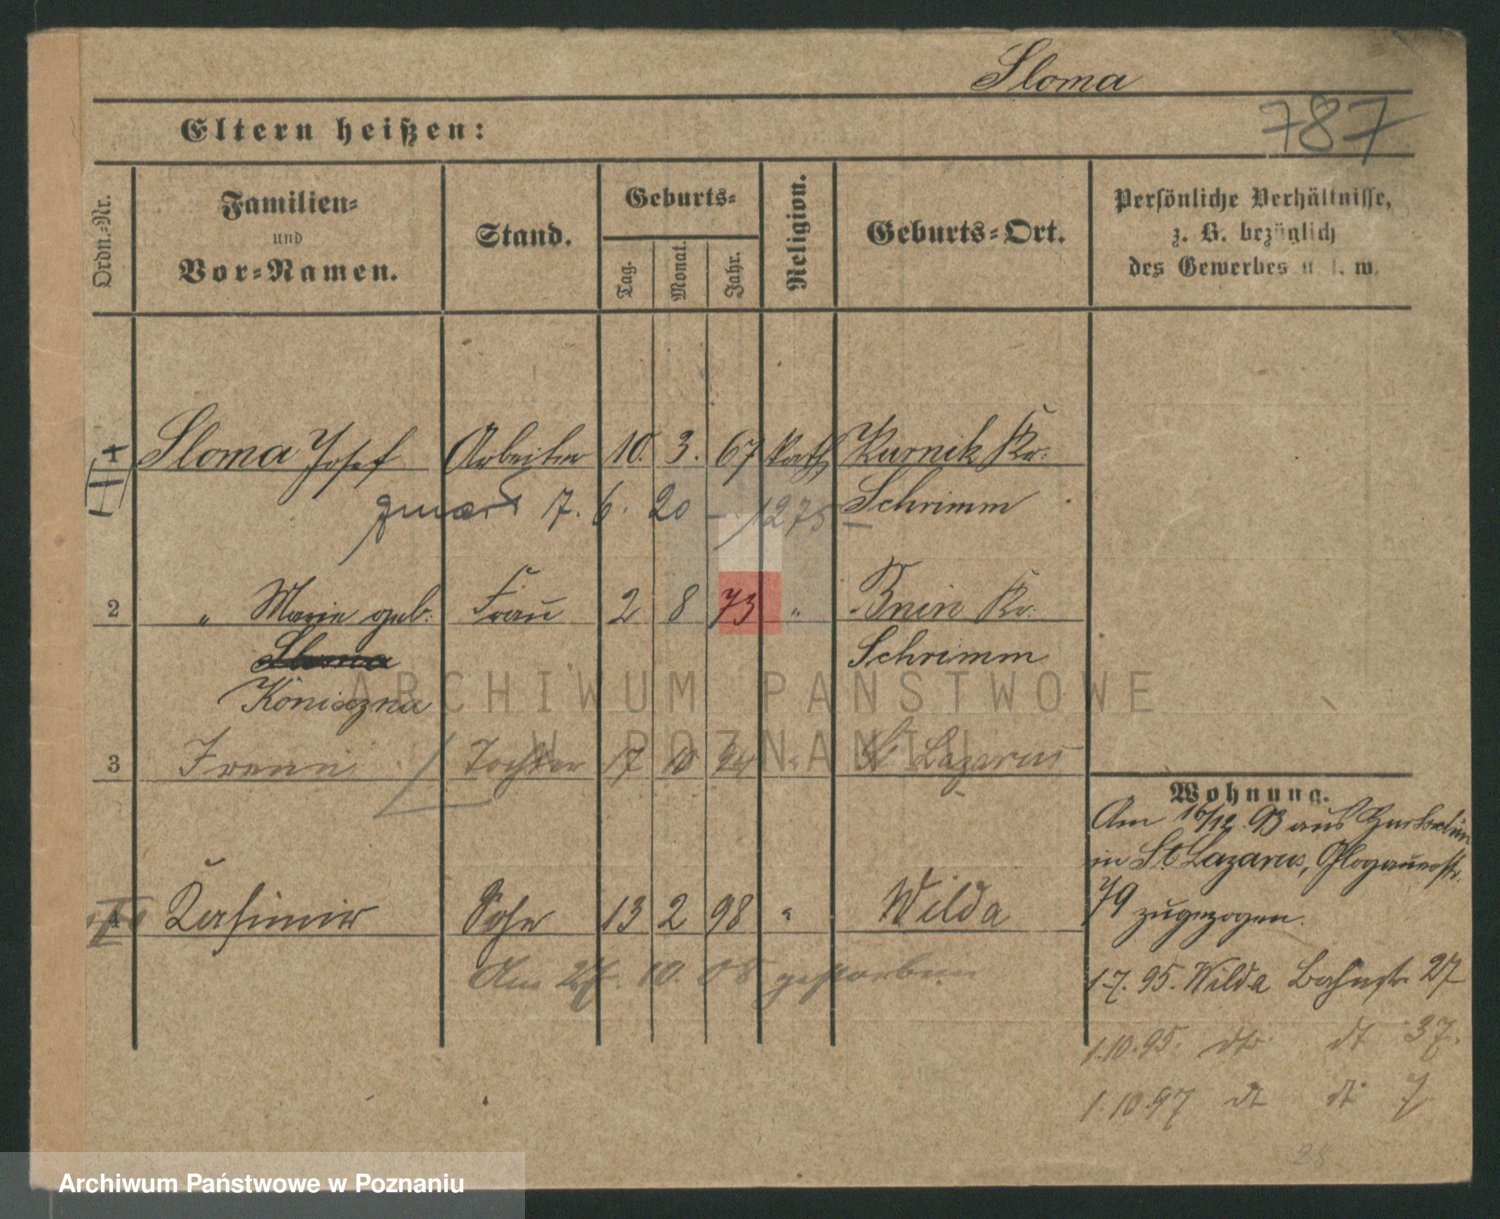 Sloma
787
Eltern heißen:
Ordn.-Nr.
Familien-
und
Vor-Namen.
Stand.
Geburts-
Tag.
Monat.
Jahr.
Religion.
Geburts-Ort.
Persönliche Verhältnisse,
z. B. bezüglich
des Gewerbes u. s. w.
1 Sloma Josef Arbeiter 10. 3. 67 kath Kurnik Kr.
Schrimm
zmarł 7. 6. 20 – 1275
2 " Marie geb. Frau 2 8 73 " Bnin Kr.
Sloma Schrimm
Koniczna
3 Irene Tochter 17 10 94 " St Lazarus
4 Kasimir Sohn 13 2 98 " Wilda
Am 27. 10. 08 gestorben
Wohnung.
Am 16/12. 93 aus
in St. Lazarus, Glogauerstr.
79 zugezogen.
1.7. 95. Wilda Bahnstr. 27
1.10.95. dto dt 37.
1.10.97 dt dt 7
28
ARCHIWUM PAŃSTWOWE
W POZNANIU
Archiwum Państwowe w Poznaniu